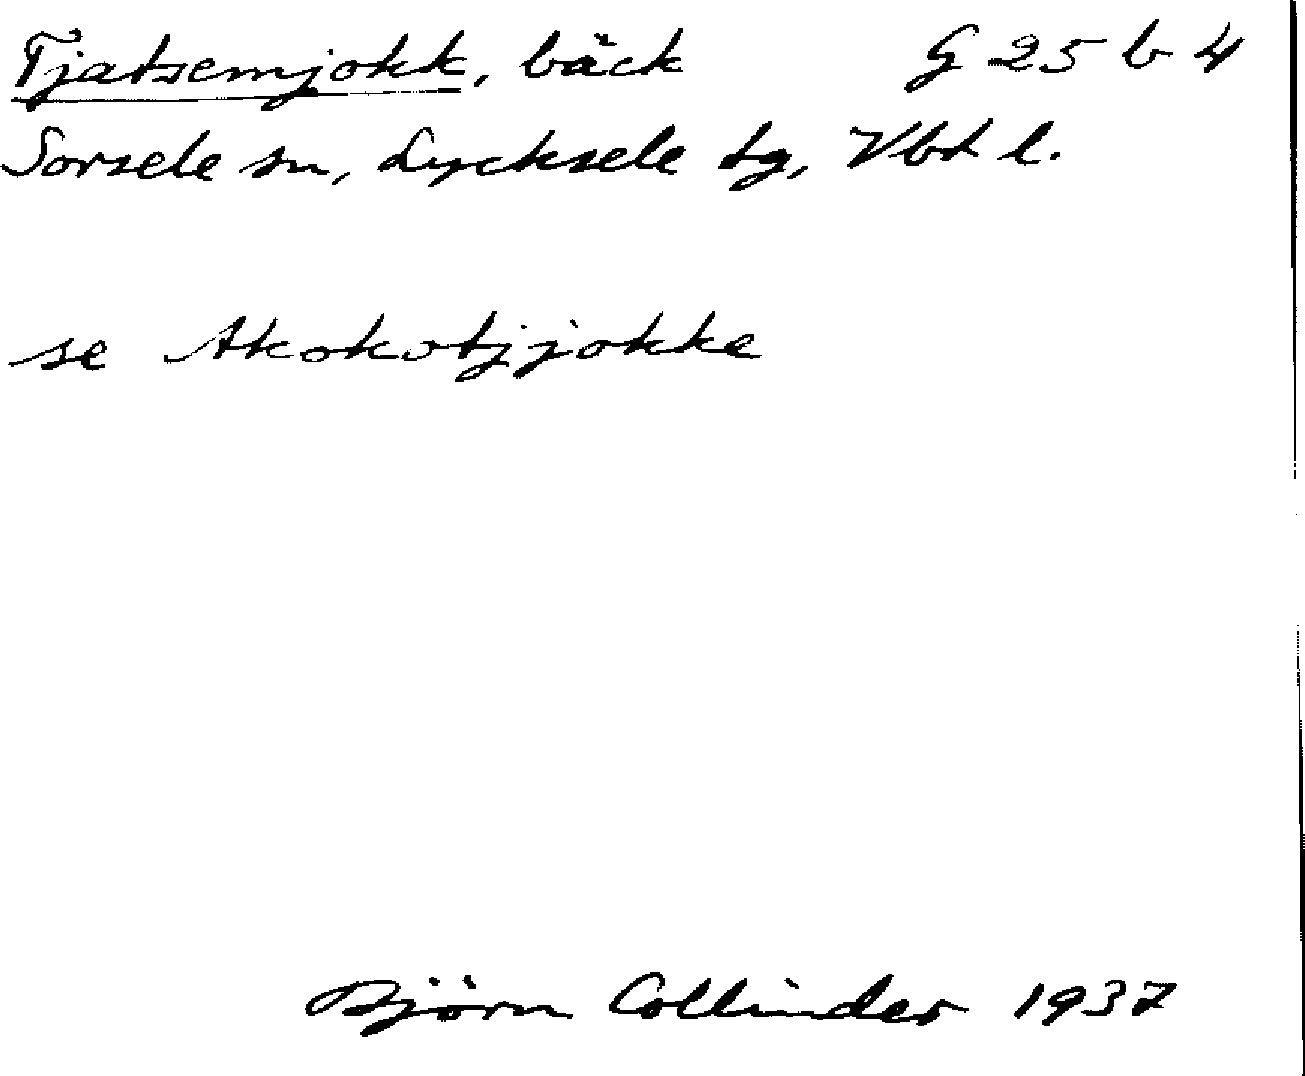 Tjatsemjokk, bäck G 25 b 4
Sorsele sn, Lycksele tg, Vbt l.
se Akokvtjjokke
Björn Collinder 1937